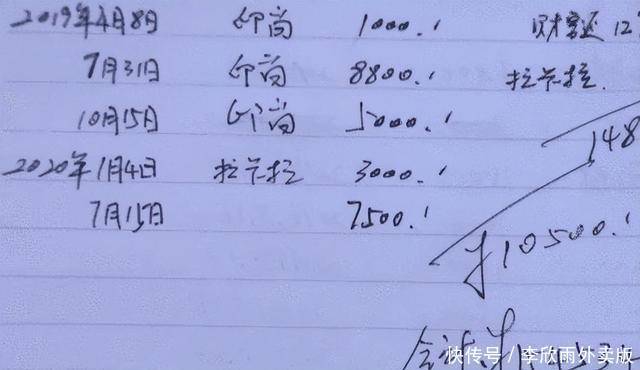 2019年4月8日 印尚 1000.- 财富还 12
7月31日 印尚 8800.- 拉卡拉.
10月15日 印尚 5000.- 148
2020年1月4日 拉卡拉 3000.-
7月15日 7500.-
¥10500.-
快传号/李欣雨外卖版